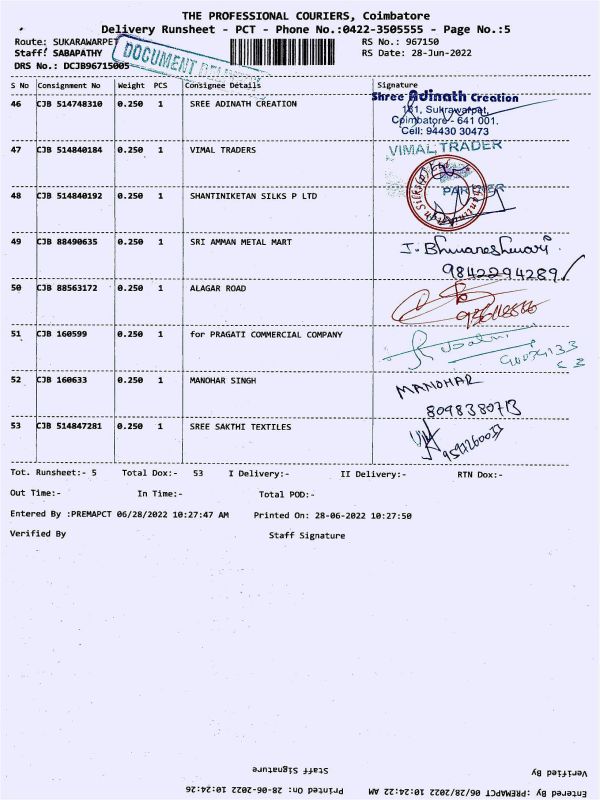 THE PROFESSIONAL COURIERS, Coimbatore
Delivery Runsheet - PCT - Phone No.:0422-3505555 - Page No.:5
Route: SUKARAWARPET RS No.: 967150
Staff: SABAPATHY RS Date: 28-Jun-2022
DRS No.: DCJB96715005
DOCUMENT
S No Consignment No Weight PCS Consignee Details Signature
46 CJB 514748310 0.250 1 SREE ADINATH CREATION
Shree Adinath Creation
181, Sukrawarpet,
Coimbatore - 641 001.
Cell: 94430 30473
47 CJB 514840184 0.250 1 VIMAL TRADERS VIMAL TRADER
48 CJB 514840192 0.250 1 SHANTINIKETAN SILKS P LTD
49 CJB 88490635 0.250 1 SRI AMMAN METAL MART J. Bhuvaneshwari
9842294289
50 CJB 88563172 0.250 1 ALAGAR ROAD
51 CJB 160599 0.250 1 for PRAGATI COMMERCIAL COMPANY
52 CJB 160633 0.250 1 MANOHAR SINGH MANOHAR
53 CJB 514847281 0.250 1 SREE SAKTHI TEXTILES
Tot. Runsheet:- 5 Total Dox:- 53 I Delivery:- II Delivery:- RTN Dox:-
Out Time:- In Time:- Total POD:-
Entered By :PREMAPCT 06/28/2022 10:27:47 AM Printed On: 28-06-2022 10:27:50
Verified By Staff Signature
Verified By Staff Signature
Entered By :PREMAPCT 06/28/2022 10:24:22 AM Printed On: 28-06-2022 10:24:26